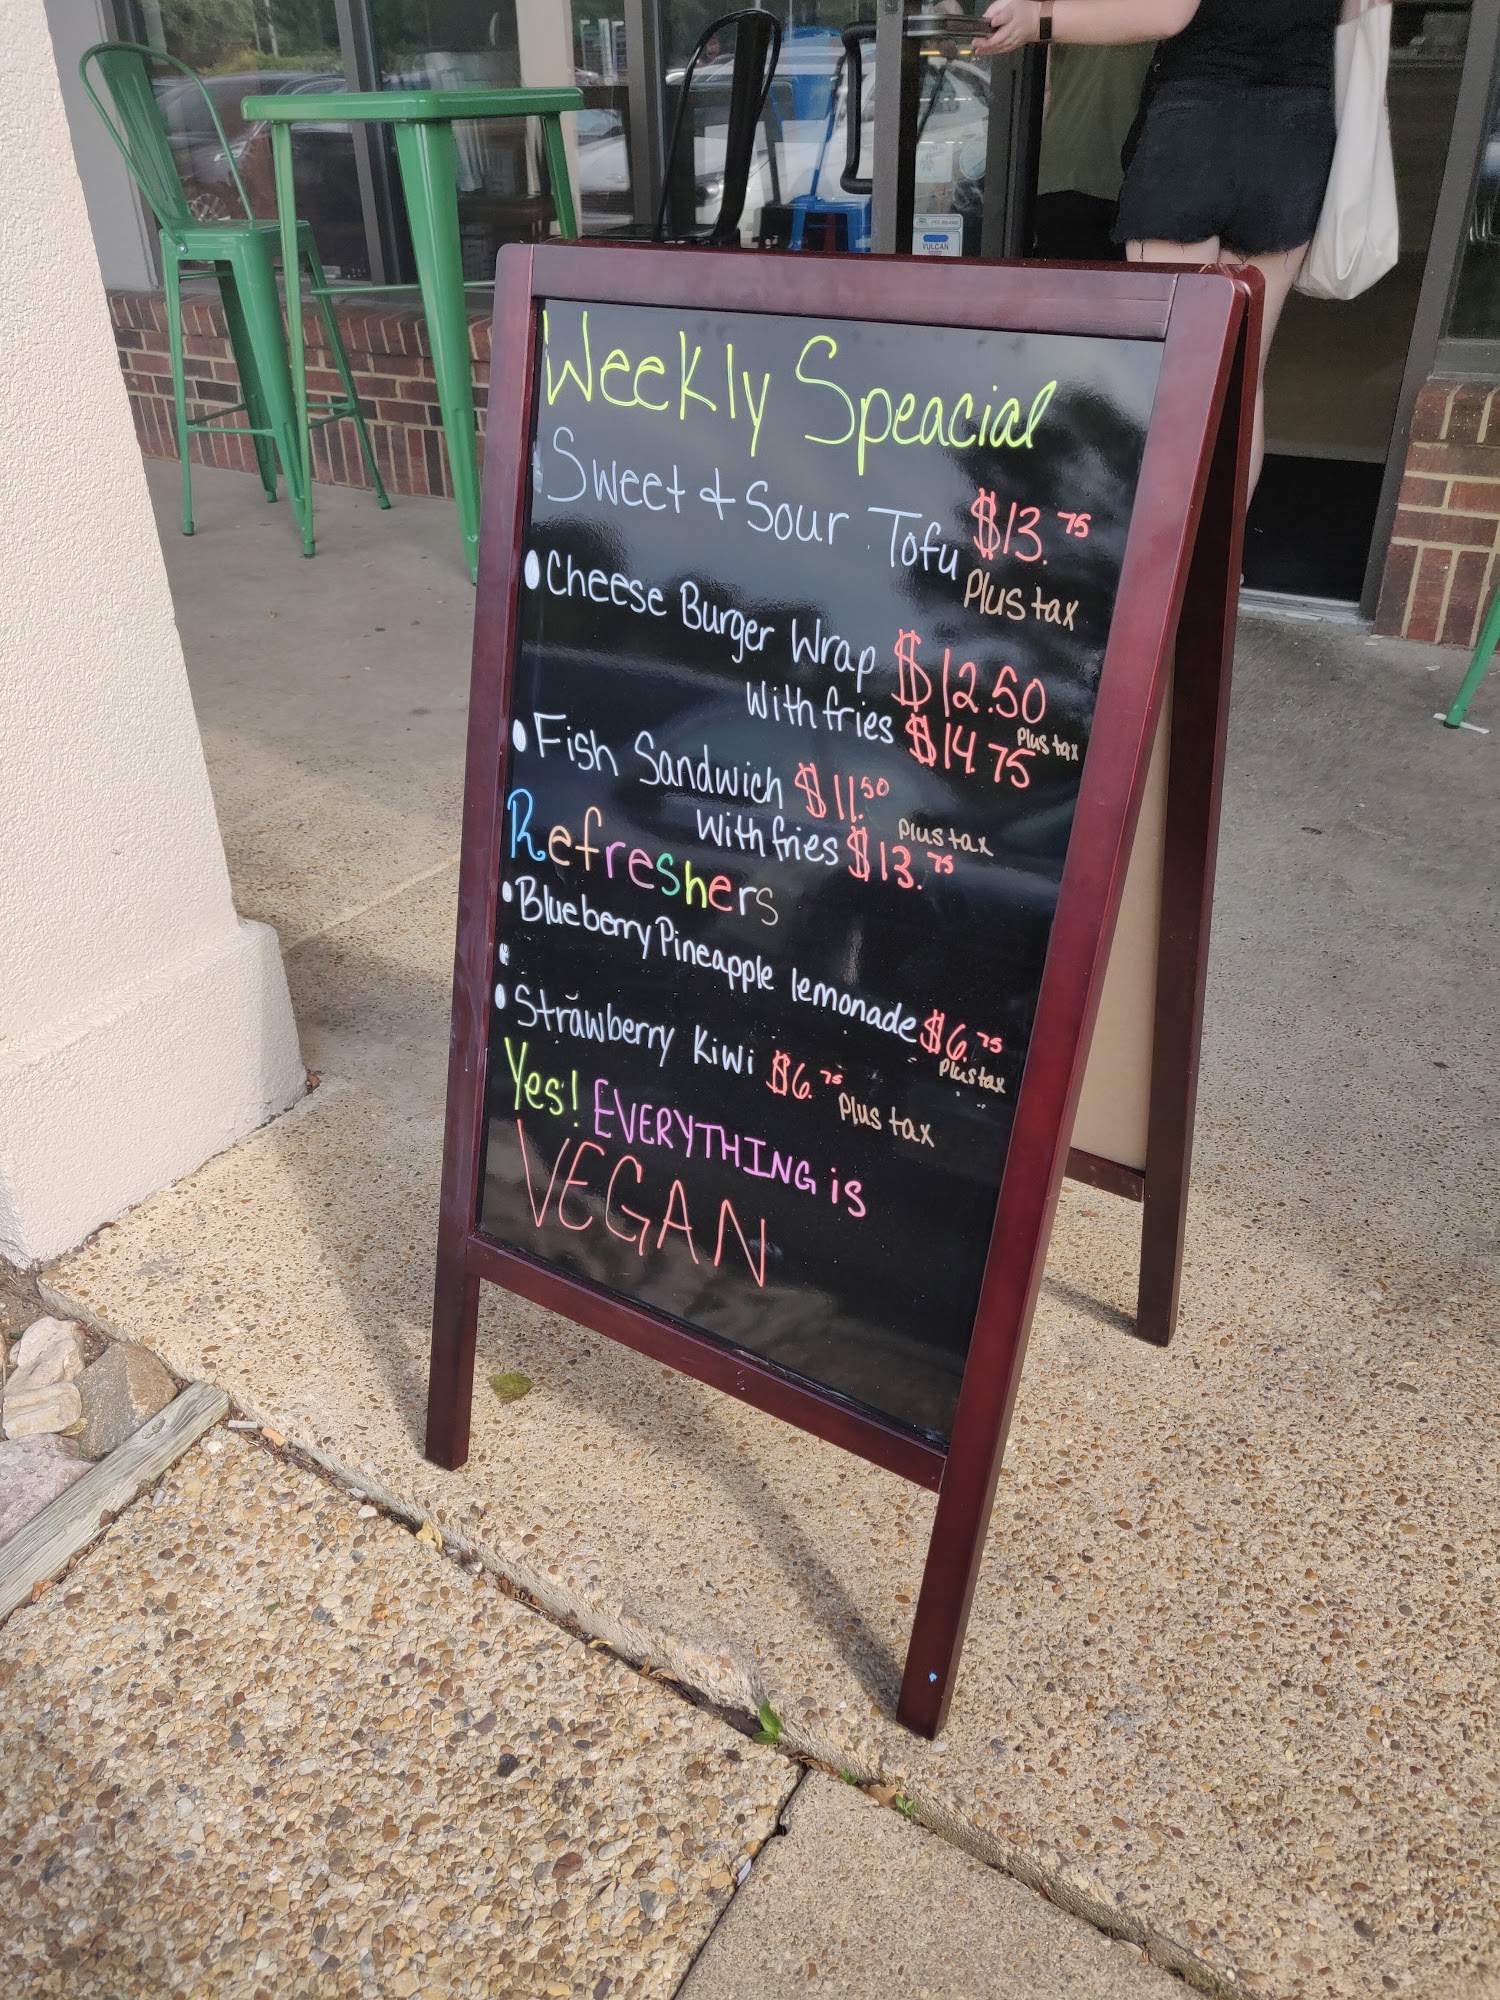 VULCAN
Weekly Speacial
Sweet & Sour Tofu $13.75
Plus tax
Cheese Burger Wrap $12.50
Plus tax
With fries $14.75
Fish Sandwich $11.50
Plus tax
With fries $13.75
Refreshers
Blueberry Pineapple lemonade $6.75
Plus tax
Strawberry Kiwi $6.75 Plus tax
Yes! EVERYTHING iS
VEGAN